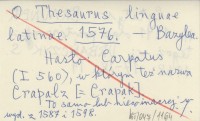 O Thesaurus linguae
latinae. 1576. — Bazylea.
Hasło Carpatus
(I 560), w którym też nazwa
Crapalz [= Crapak]
To samo lub nieco inaczej
wyd. z 1587 i 1598.